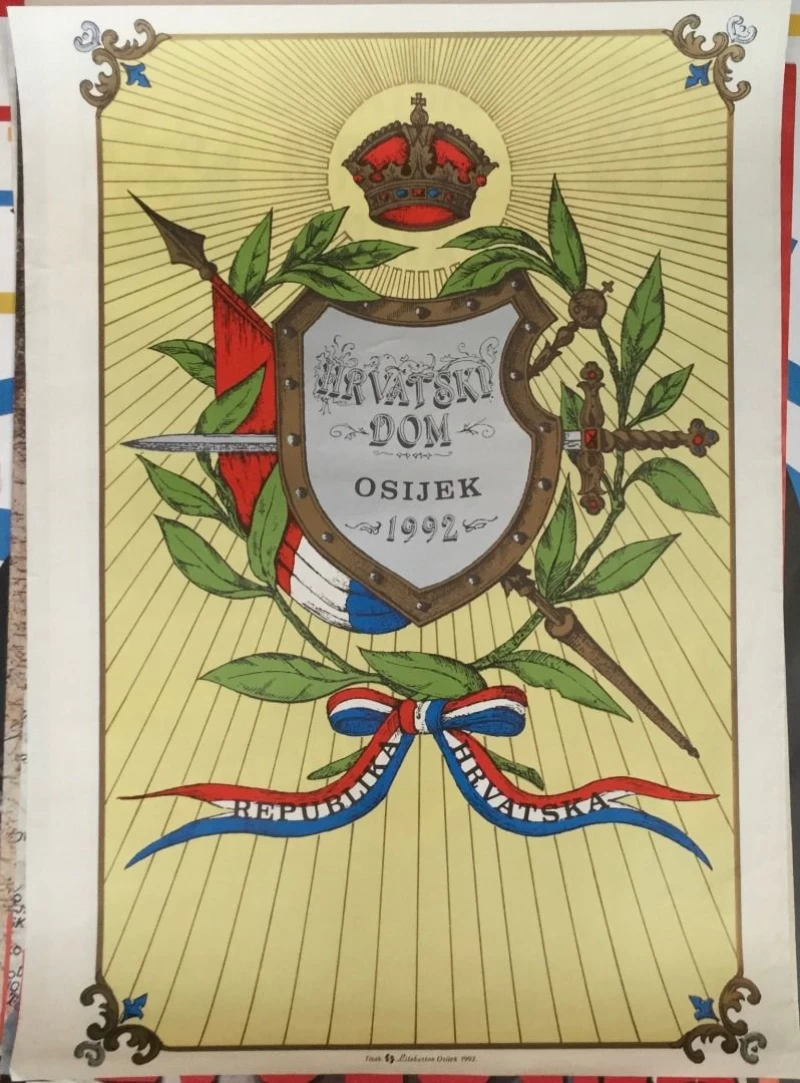 HRVATSKI
DOM
OSIJEK
1992
REPUBLIKA HRVATSKA
Tisak Litokarton Osijek 1992.